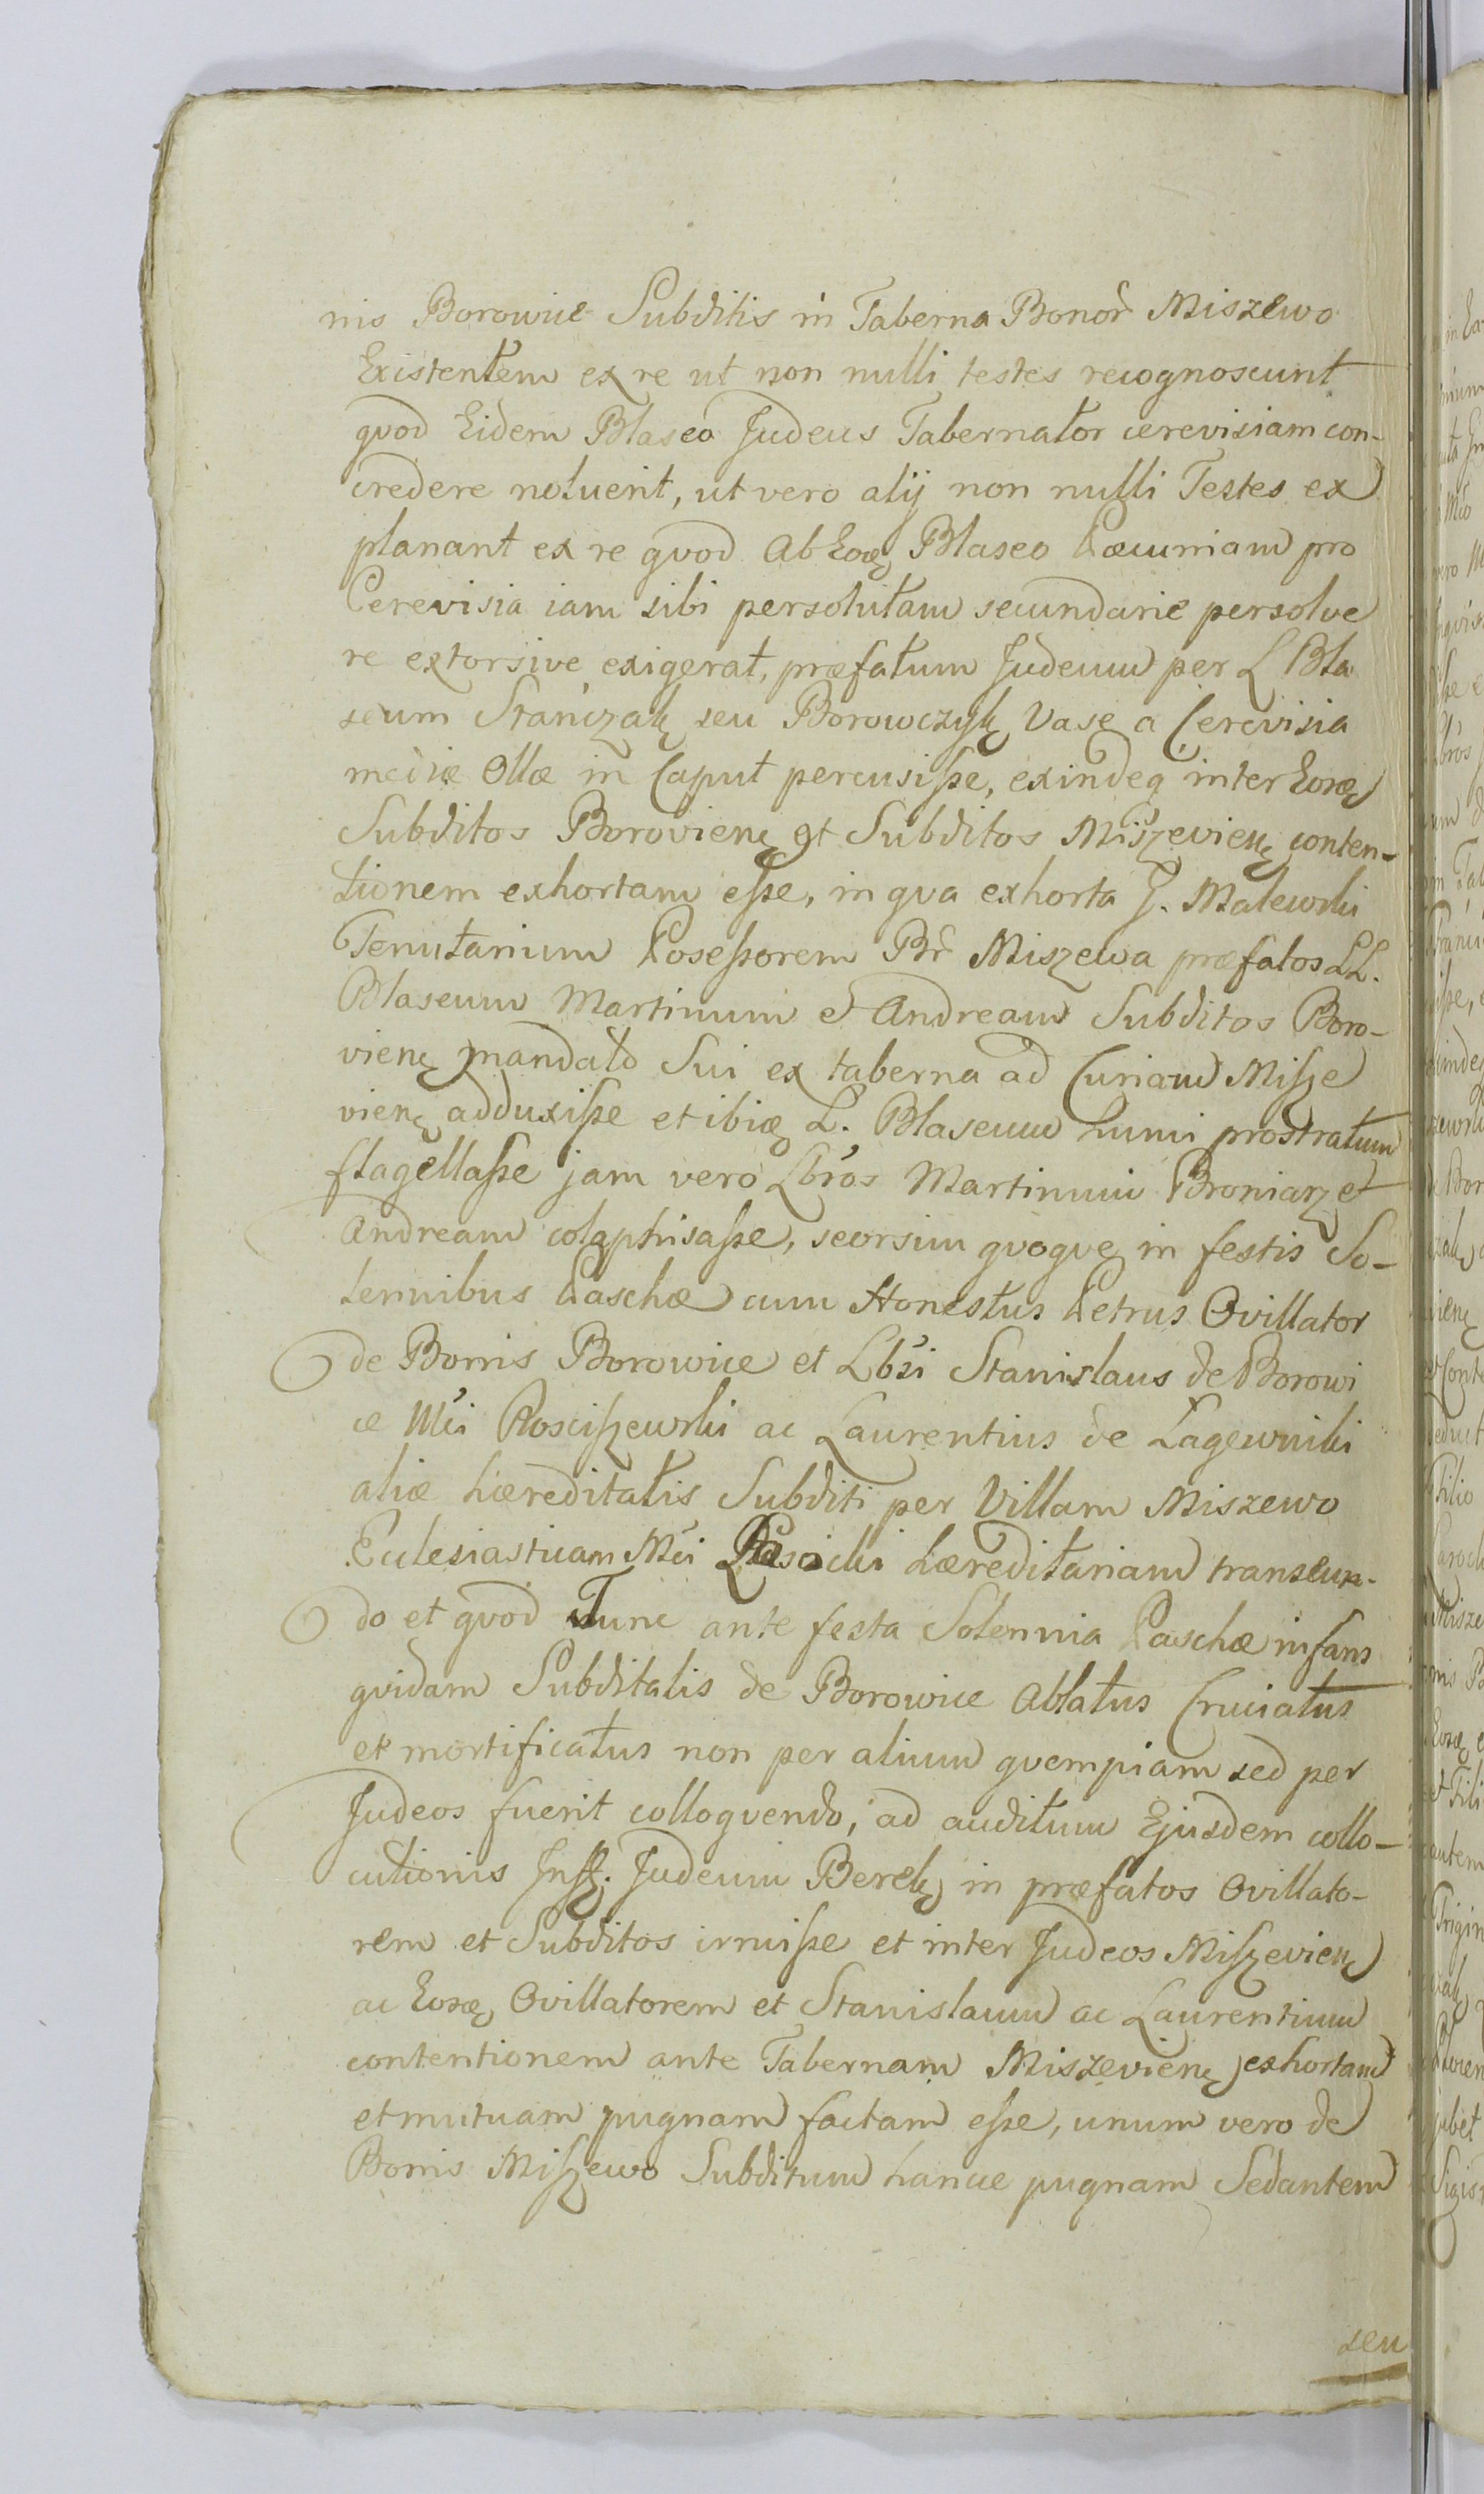 nis Borowice Subditis in Taberna Bonor̃ Miszewo
Existentem ex re ut non nulli testes recognoscunt
qvod Eidem Blaseo Judeus Tabernator cerevisiam con-
credere noluerit, ut vero alij non nulli Testes ex
planant ex re qvod ab Eoq Blaseo Pæcuniam pro
Cerevisia iam sibi persolutam secundarie persolve
re extorsive exigerat, præfatum Judeum per L Bla
seum Stańczak seu Borowczyk Vase a Cerevisia
mediæ Ollæ in Caput percusisse, exindeq inter Eosq
Subditos Borovien et Subditos Miszevien conten-
tionem exhortam esse, in qva exhorta G. Malewski
Tenutarium Posessorem Br̃ Miszewa præfatos LL.
Blaseum Martinum et Andream Subditos Boro-
vien mandato Sui ex taberna ad Curiam Misze
vien adduxisse et ibiq L. Blaseum humi prostratum
flagellasse jam vero Lbros Martinum Broniarz et
Andream colaphisasse, seorsim qvoqve in festis So-
lennibus Paschæ cum Honestus Petrus Ovillator
de Bonis Borowice et Lbri Stanislaus de Borowi
ce Mci Rosciszewski ac Laurentius de Lagewniki
aliæ hæreditatis Subditi per Villam Miszewo
Eclesiasticam Mci hæreditariam transeun-
do et qvod Tunc ante festa Solennia Paschæ infans
qvidam Subditalis de Borowice Ablatus Cruciatus
et mortificatus non per alium qvempiam sed per
Judeos fuerit colloqvendo, ad auditum Ejusdem collo-
cutionis Inf. Judeum Berek in præfatos Ovillato-
rem et Subditos irruisse et inter Judeos Miszevien
ac Eosq Ovillatorem et Stanislaum ac Laurentium
contentionem ante Tabernam Miszevien exhortam
et mutuam pugnam factam esse, unum vero de
Bonis Miszewo Subditum hance pugnam Sedantem
seu